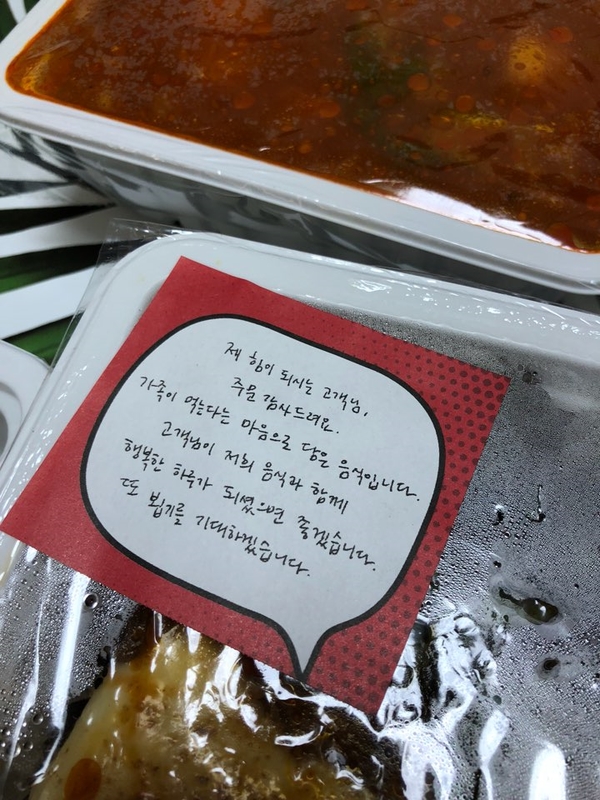 제 힘이 되시는 고객님,
주문 감사드려요.
가족이 먹는다는 마음으로 담은 음식입니다.
고객님이 저희 음식과 함께
행복한 하루가 되셨으면 좋겠습니다.
또 뵙기를 기대하겠습니다.